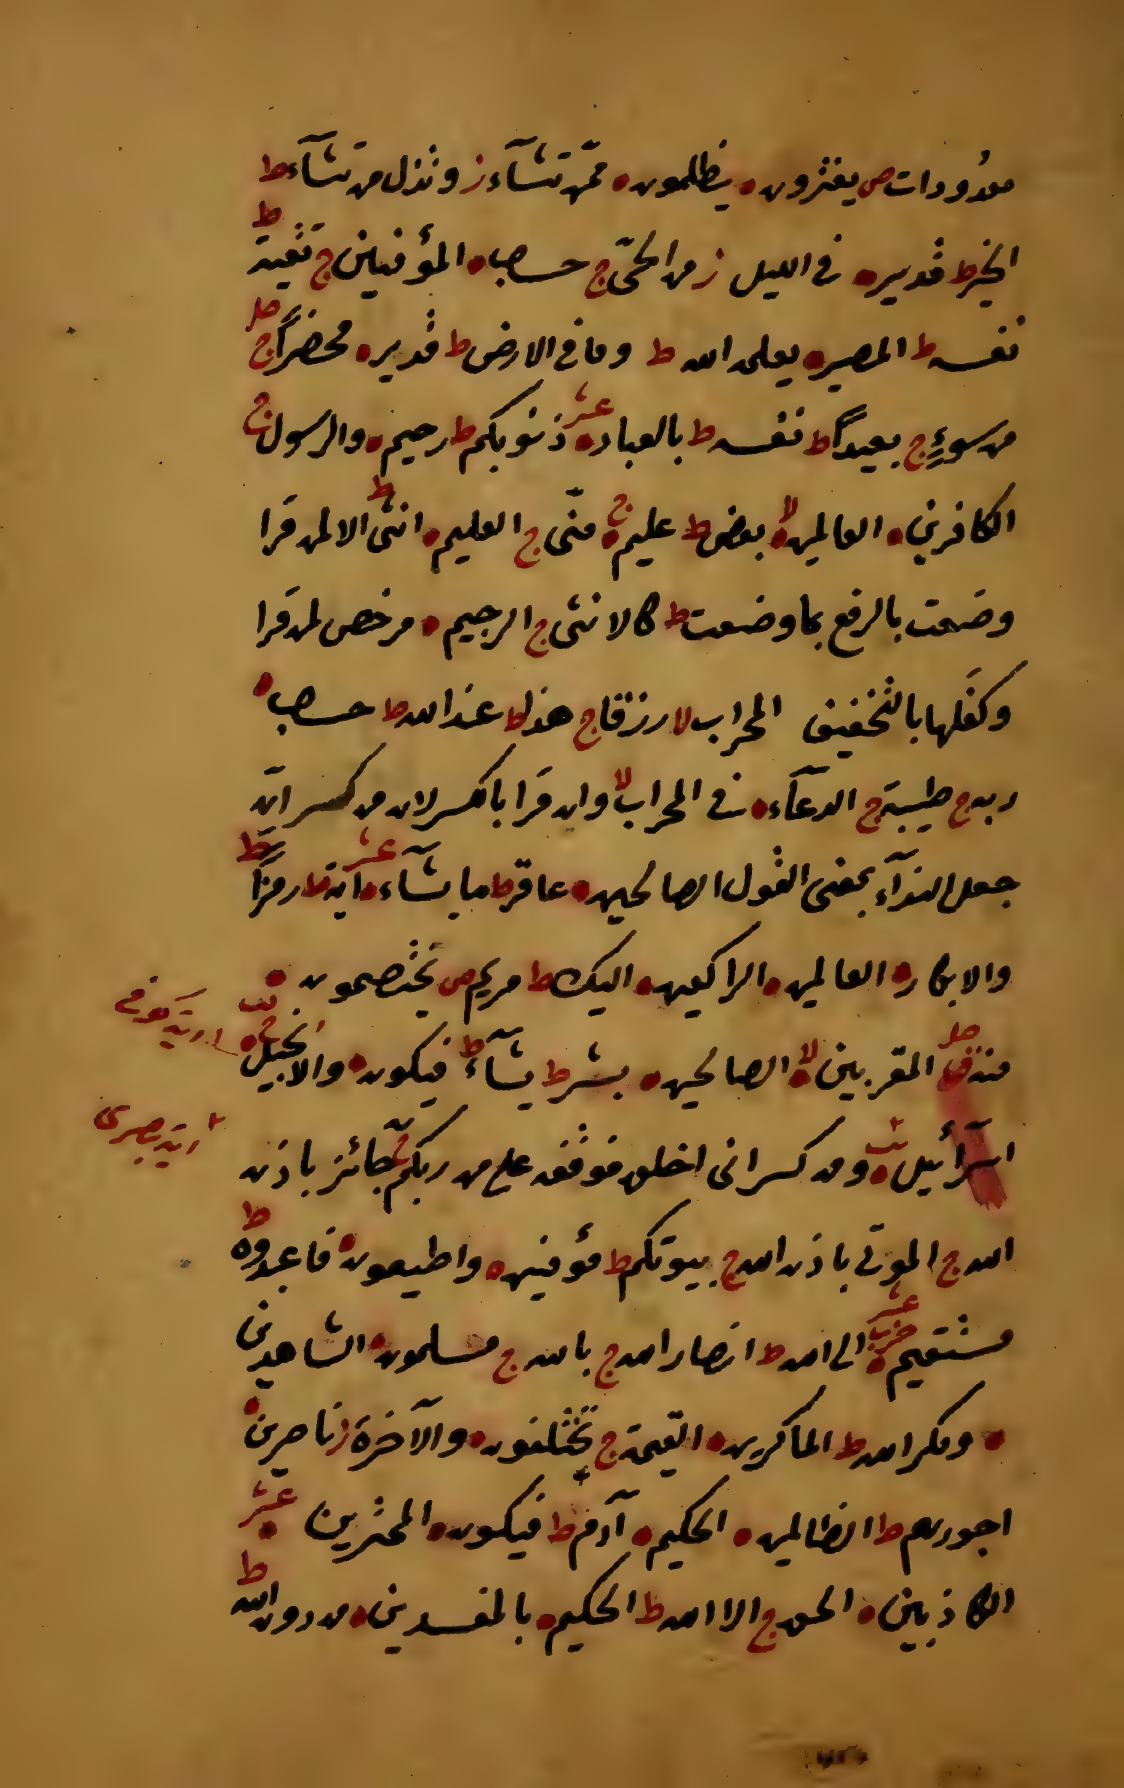 معدُودات ص يفترون • يظلمون • ممّن تشآء ز وتذل من تشآء ط
الخير ط قدير • في الليل ز من الحيّ ج حساب • المؤمنين ج تقية ط
نفسه ط المصير • يعلمه الله ط وما في الارض ط قدير • محضرًا ج صل
من سوءٍ ج بعيدًا ط نفسه ط بالعباد • عشر ذنوبكم ط رحيم • والرسول ج
الكافرين • العالمين • لا بعض ط عليم • ج منّي ج العليم • انثى ط الا لمن قرا
وضعت بالرفع بما وضعت ط كالانثى ج الرجيم • مرخص لمن قرا
وكفلها بالتخفيف المحراب لا رزقا ج هذا ط عند الله ط حساب •
ربه ج طيبة ج الدعآء • في المحراب لا وان قرا بالكسر لان من كسر انّ
جعل الندآء بمعنى القول الصالحين • عاقر ط ما يشآء • عشر آية ط رمزًا ط
والابكار • العالمين • الراكعين • اليك ط مريم ص يختصمون •
منه ق صل المقربين • لا الصالحين • بشر ط يشآء ط فيكون • والانجيل • ج
آية كوفي
اسرآئيل • ومن كسر اني اخلق فوقفه على من ربكم ج جائز باذن
آية بصري
الله ج الموتى باذن الله ج بيوتكم ط مؤمنين • واطيعون • فاعبدوه ط
مستقيم • عشر حزب الى الله ط انصار الله ج بالله ج مسلمون • الشاهدين
• ومكر الله ط الماكرين • القيمة ج تختلفون • والآخرة ز ناصرين •
اجورهم ط الظالمين • الحكيم • آدم ط فيكون • الممترين • عشر
الكاذبين • الحق ج الا الله ط الحكيم • بالمفسدين • من دون الله ط